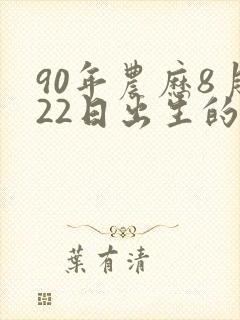 90年農歷8月
22日出生的
葉有清